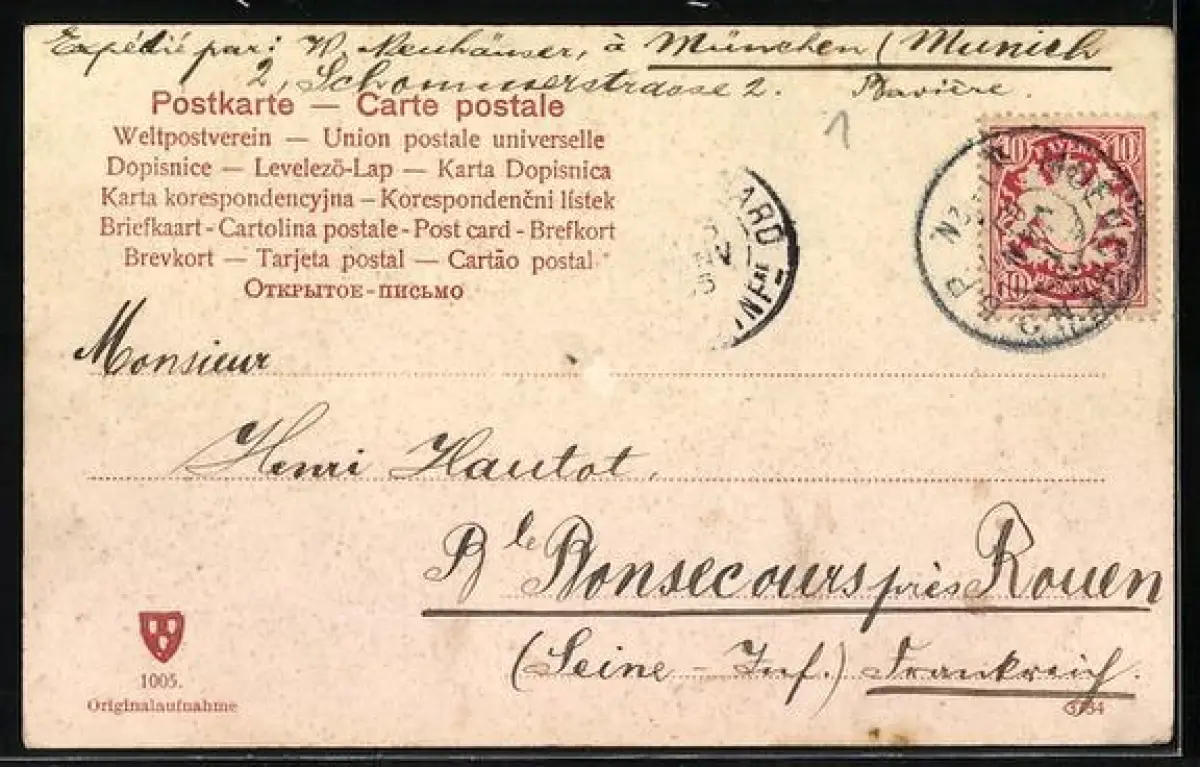 Expédié par: W. Neuhäuser, à München (Munich
2, Schommerstrasse 2. Bavière.
Postkarte — Carte postale
Weltpostverein — Union postale universelle
Dopisnice — Levelező-Lap — Karta Dopisnica
Karta korespondencyjna — Korespondenčni listek
Briefkaart - Cartolina postale - Post card - Brefkort
Brevkort — Tarjeta postal — Cartão postal
Открытое-письмо
1
10 10
BAYERN
10
Monsieur
Henri Hautot,
Ble Bonsecours près Rouen
(Seine - Inf.) Frankreich.
1005.
Originalaufnahme